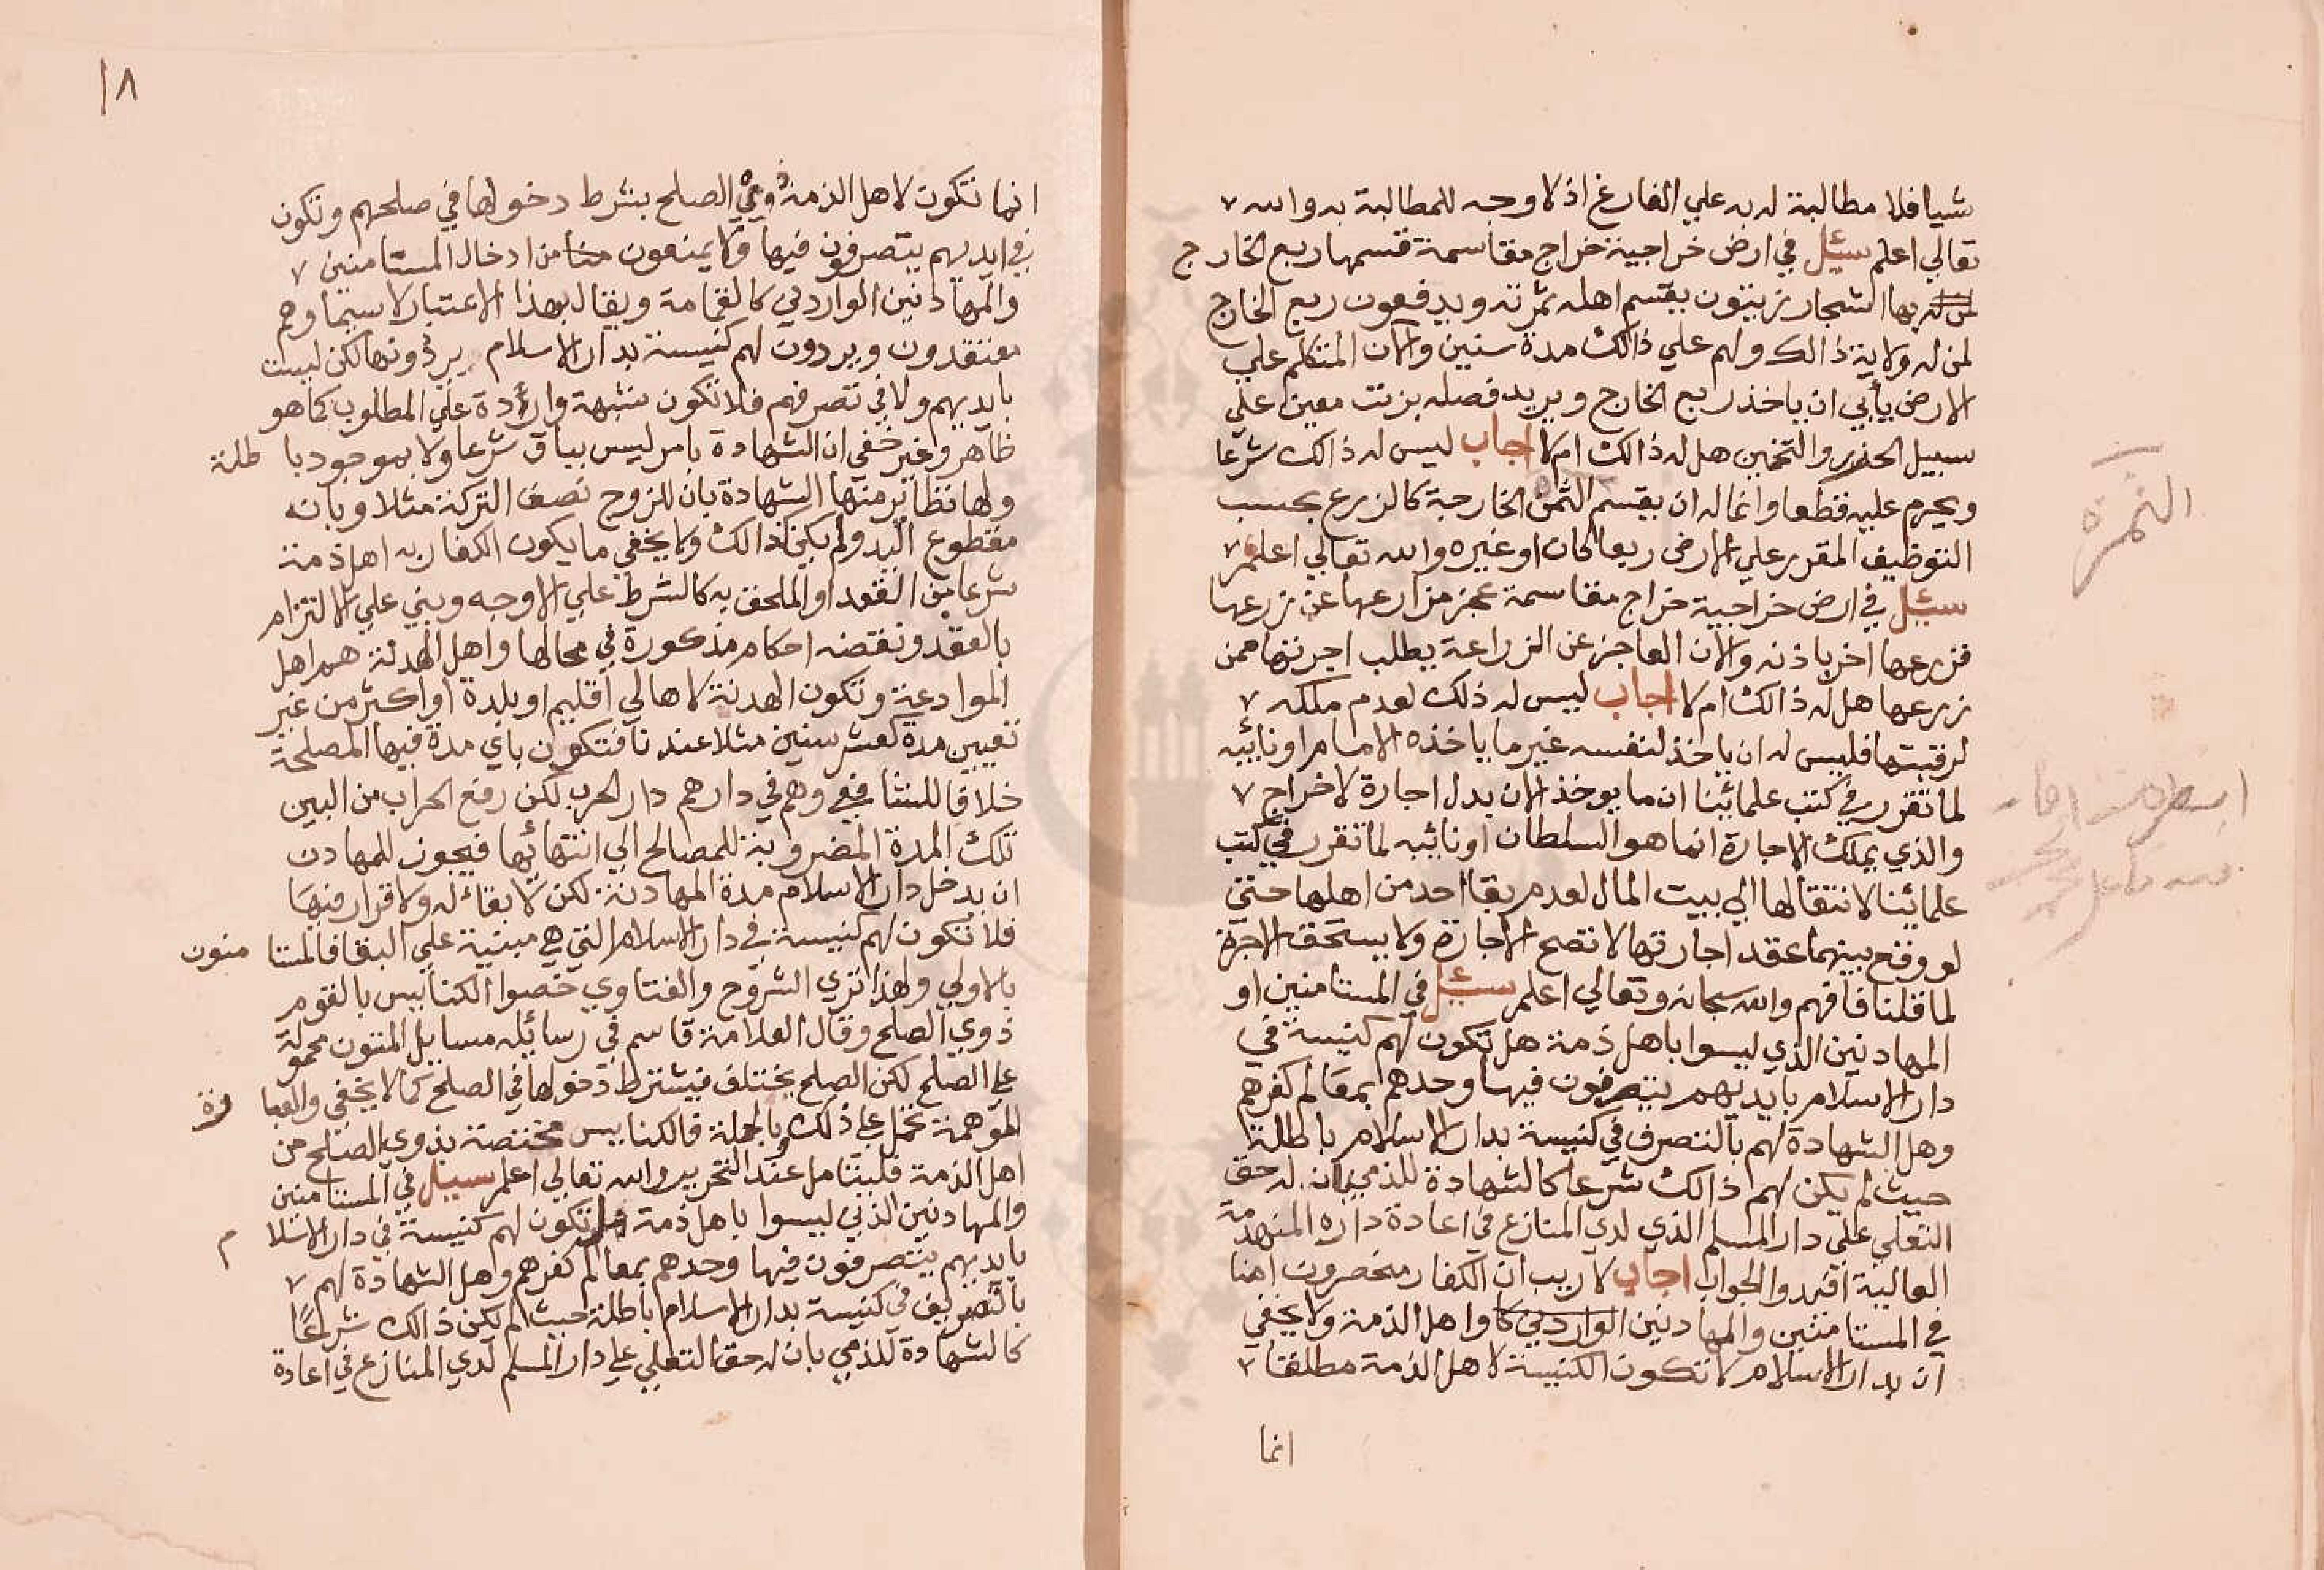 شيا فلا مطالبة له به علي الفارغ اذ لا وجه للمطالبة به والله
تعالي اعلم سئل في ارض خراجية خراج مقاسمة قسمها ربع الخارج
بها اشجار زيتون يقسم اهله ثمرته ويدفعون ربع الخارج
لمن له ولاية ذالك ولهم علي ذالك مدة سنين والان المتكلم علي
الارض يأبي ان ياخذ ربع الخارج ويريد فصله بزيت معين علي
سبيل الحذر والتخمين هل له ذالك ام لا اجاب ليس له ذالك شرعا
ويحرم عليه قطعا وانما له ان يقسم الثمن الخارجة كالزرع بحسب
التوظيف المقرر علي الارض ربعا كان او غيره والله تعالي اعلم
سئل في ارض خراجية خراج مقاسمة عجز مزارعها عن زرعها
فزرعها اخر باذنه والان العاجز عن الزراعة يطلب اجرتها ممن
زرعها هل له ذالك ام لا اجاب ليس له ذلك لعدم ملكه
لرقبتها فليس له ان ياخذ لنفسه غير ما ياخذه الامام او نائبه
لما تقرر في كتب علمائنا ان ما يوخذ الان بدل اجارة لا خراج
والذي يملك الاجارة انما هو السلطان او نائبه لما تقرر في كتب
علمائنا لانتقالها الي بيت المال لعدم بقا احد من اهلها حتي
لو وقع بينهما عقد اجارتها لا تصح الاجارة ولا يستحق الاجرة
لما قلنا فافهم والله سبحانه وتعالي اعلم سئل في المستامنين او
المهادنين الذي ليسوا باهل ذمة هل تكون لهم كنيسة في
دار الاسلام بايديهم يتصرفون فيها وحدهم بمعالم كفرهم
وهل الشهادة لهم بالتصرف في كنيسة بدار الاسلام باطلة
حيث لم يكن لهم ذالك شرعا كالشهادة للذمي بان له حق
التعلي علي دار المسلم الذي لدي المنازع في اعادة داره المنهدمة
العالية افيدوا الجواب اجاب لا ريب ان الكفار منحصرون
في المستامنين والمهادنين الواردين كا واهل الذمة ولا يخفي
ان بدار الاسلام لا تكون الكنيسة لاهل الذمة مطلقا
انما
الثمرة
١٨
انما تكون لاهل الذمة ذوي الصلح بشرط دخولها في صلحهم وتكون
في ايديهم يتصرفون فيها ولا يمنعون من ادخال المستامنين
والمهادنين الواردين كالقمامة ويقال بهذا الاعتبار لاسيما وهم
معتقدون ويردون لهم كنيسة بدار الاسلام يردونها لكن ليست
بايديهم ولا في تصرفهم فلا تكون شبهة واردة علي المطلوب كما هو
ظاهر وغير خفي ان الشهادة بامر ليس بباق شرعا ولا بموجود باطلة
ولها نظائر منها الشهادة بان للزوج نصف التركة مثلا وبانه
مقطوع اليد ولم يكن كذالك ولا يخفي ما يكون الكفار به اهل ذمة
شرعا من العقد او الملحق به كالشرط علي الاوجه وبني علي الالتزام
بالعقد ونقضه احكام مذكورة في محالها واهل الهدنة هم اهل
الموادعة وتكون الهدنة لاهالي اقليم او بلدة او اكثر من غير
تعيين مدة كعشر سنين مثلا عندنا فتكون باي مدة فيها المصلحة
خلافا للشافعي وهم في دارهم دار الحرب لكن رفع الحراب من البين
تلك المدة المضروبة للمصالح الي انتهائها فيجوز للمهادن
ان يدخل دار الاسلام مدة المهادنة لكن لا بقاء له ولا قرار فيها
فلا تكون لهم كنيسة في دار الاسلام التي هي مبنية علي البقا فالمستامنون
بالاولي ولهذا تري الشروح والفتاوي خصوا الكنايس بالقوم
ذوي الصلح وقال العلامة قاسم في رسائله مسايل المتون محمولة
علي الصلح لكن الصلح يختلف فيشترط دخولها في الصلح كما لا يخفي والعبارة
الموهمة تحمل علي ذلك وبالجملة فالكنايس مختصة بذوي الصلح من
اهل الذمة فليتامل عند التحرير والله تعالي اعلم سيئل في المستامنين
والمهادنين الذين ليسوا باهل ذمة هل تكون لهم كنيسة في دار الاسلام
بايديهم يتصرفون فيها وحدهم بمعالم كفرهم وهل الشهادة لهم
بالتصريف في كنيسة بدار الاسلام باطلة حيث لم يكن ذالك شرعا
كالشهادة للذمي بان له حق التعلي علي دار المسلم لدي المنازع في اعادة